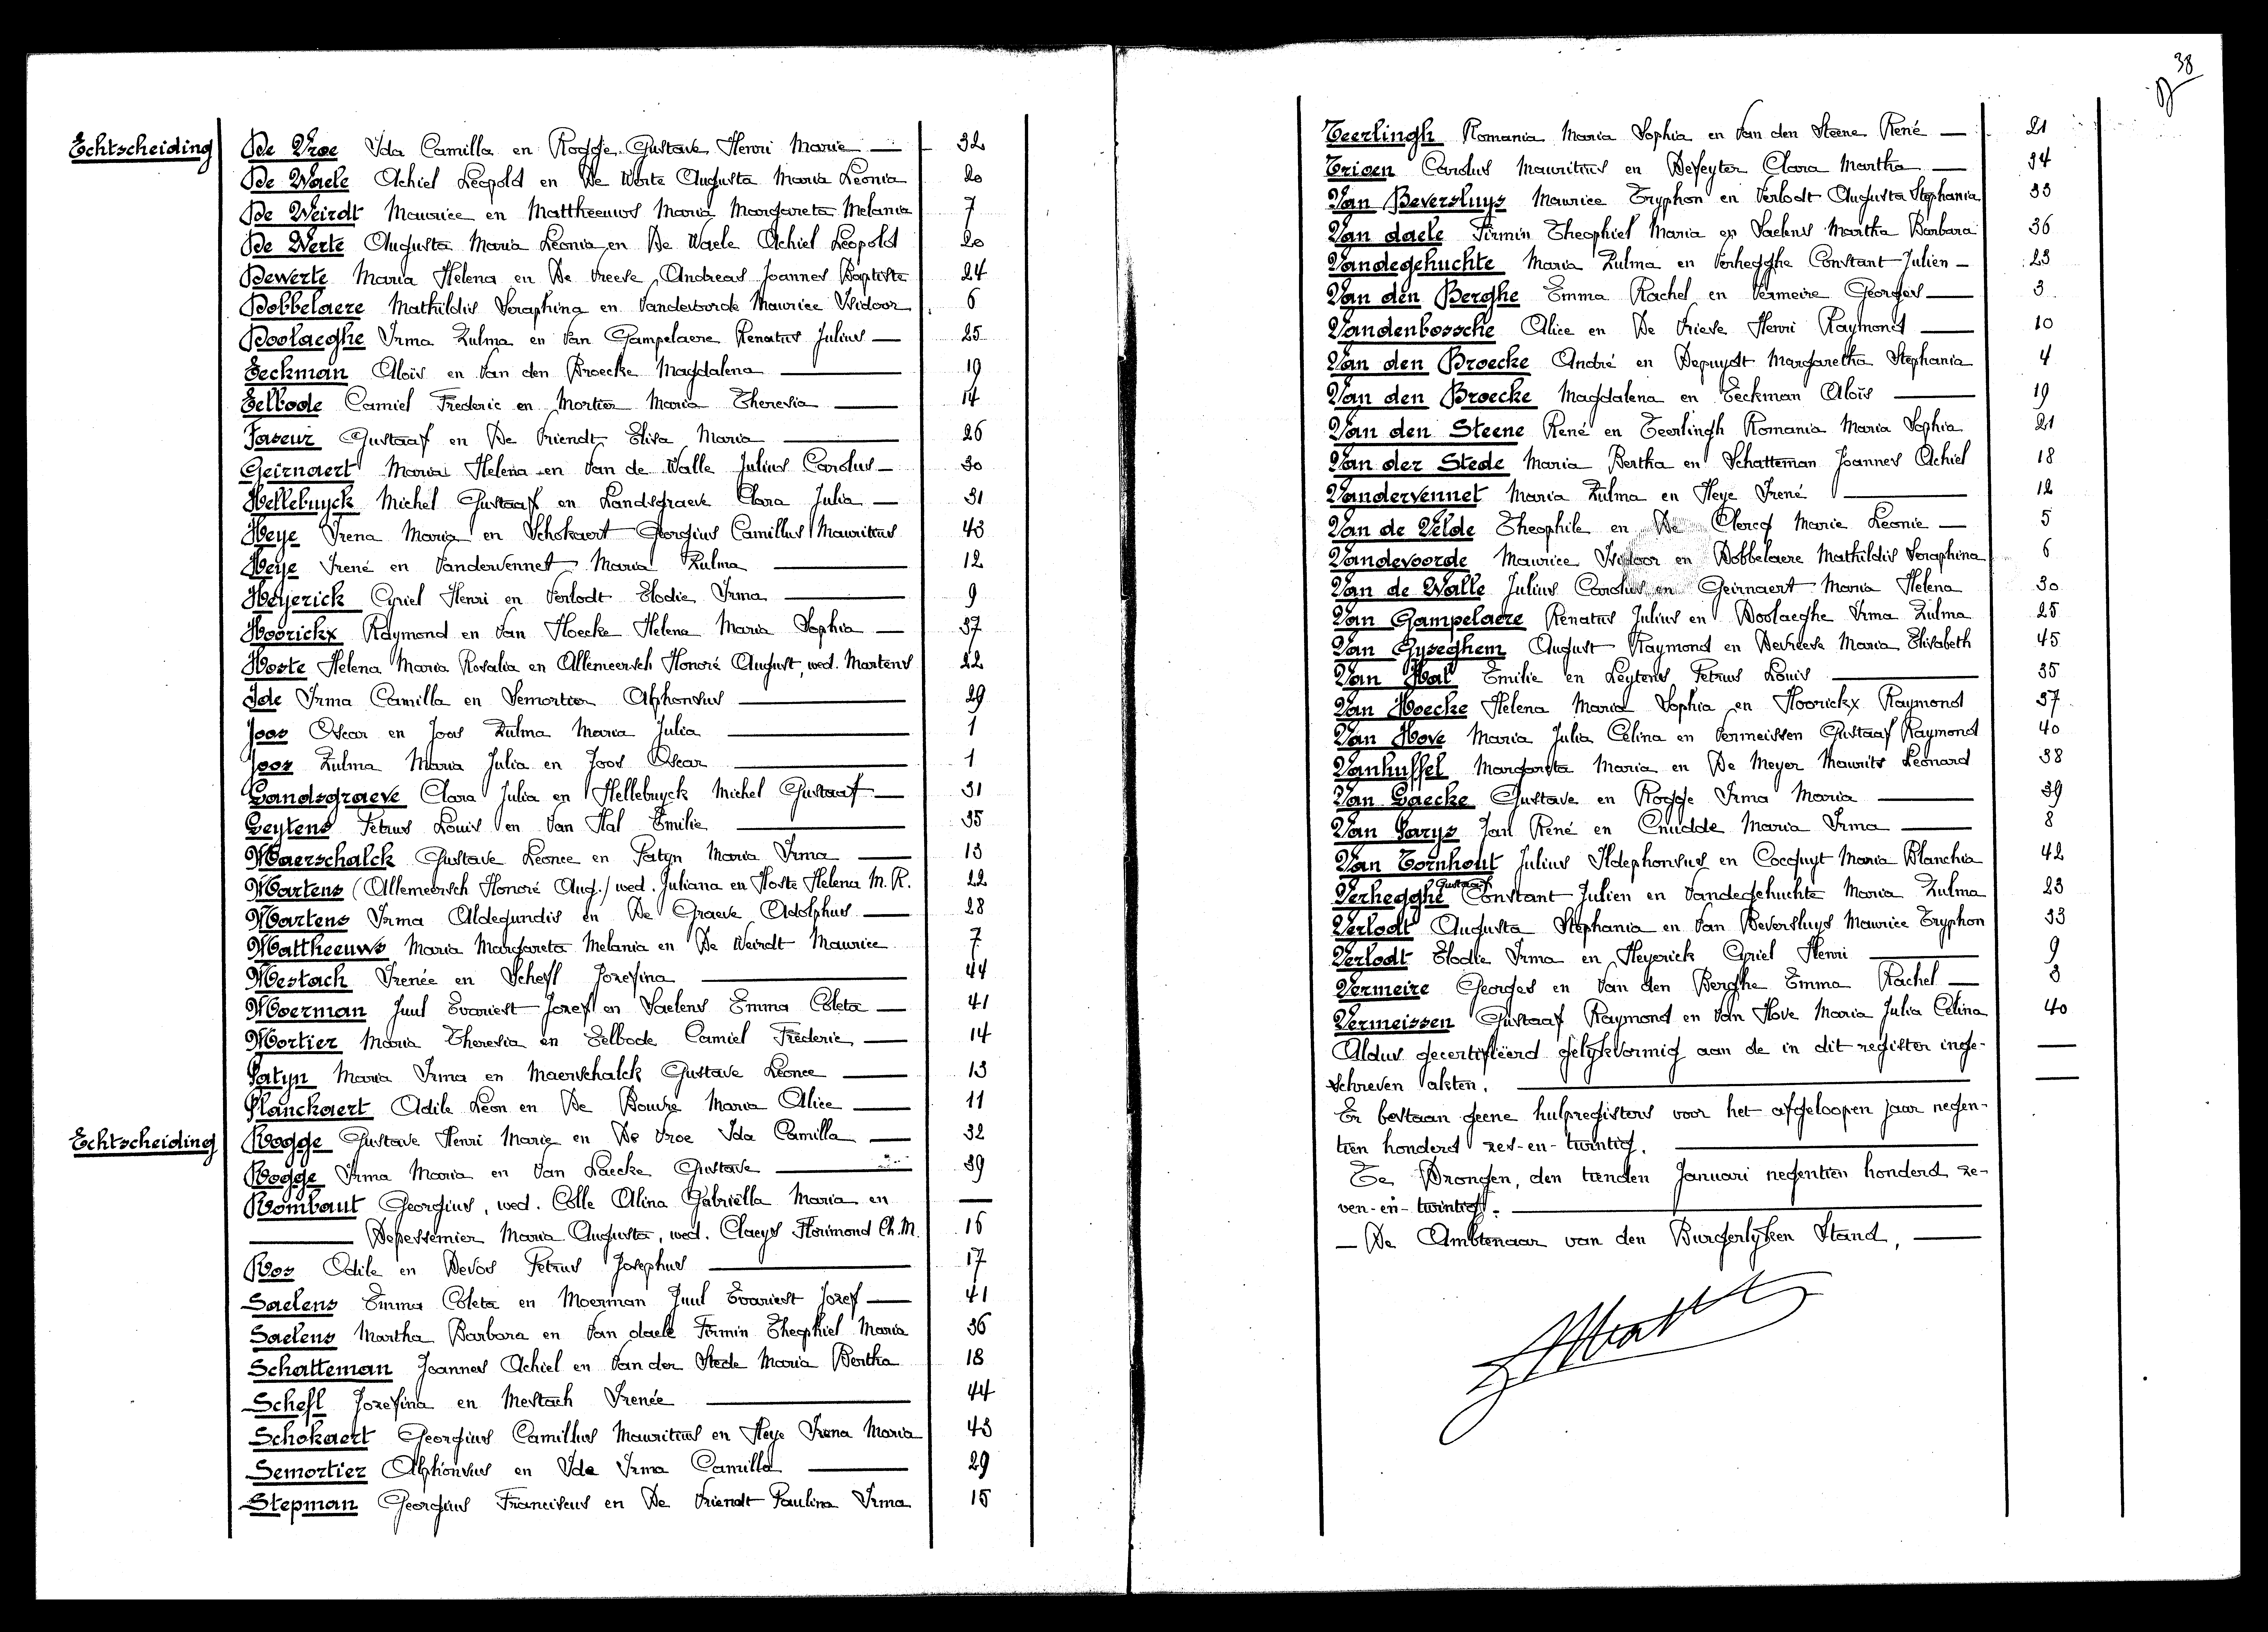 Echtscheiding De Vroe Ida Camilla en Rogge Gustave Henri Marie — 32
De Waele Achiel Leopold en De Werte Augusta Maria Leonia 20
De Weirdt Maurice en Mattheeuws Maria Margareta Melania 7
De Werte Augusta Maria Leonia en De Waele Achiel Leopold 20
Dewerte Maria Helena en De Vreese Andreas Joannes Baptiste 24
Dobbelaere Mathildis Seraphina en Vandevoorde Maurice Isidoor 6
Doolaeghe Irma Zulma en Van Gampelaere Renatus Julius — 25
Eeckman Aloïs en Van den Broecke Magdalena — 19
Eelbode Camiel Frederic en Mortier Maria Theresia — 14
Faseur Gustaaf en De Vriendt Elisa Maria — 26
Geirnaert Maria Helena en Van de Walle Julius Carolus — 30
Hellebuyck Michel Gustaaf en Landsgraeve Clara Julia — 31
Heye Irena Maria en Schokaert Georgius Camillus Mauritius 43
Heye Irené en Vandervennet Maria Zulma — 12
Heyerick Cyriel Henri en Verlodt Elodie Irma — 9
Hoorickx Raymond en Van Hoecke Helena Maria Sophia — 37
Hoste Helena Maria Rosalia en Allemeersch Honoré August, wed. Martens 22
Ide Irma Camilla en Semortier Alphonsus — 29
Joos Oscar en Joos Zulma Maria Julia — 1
Joos Zulma Maria Julia en Joos Oscar — 1
Landsgraeve Clara Julia en Hellebuyck Michel Gustaaf — 31
Leytens Petrus Louis en Van Hal Emilie — 35
Maerschalck Gustave Leonce en Patyn Maria Irma — 13
Martens (Allemeersch Honoré Aug.) wed. Juliana en Hoste Helena M. R. 22
Martens Irma Aldegundis en De Graeve Adolphus — 28
Mattheeuws Maria Margareta Melania en De Weirdt Maurice 7
Mestach Irenée en Schefl Jozefina — 44
Moerman Juul Evariest Jozef en Saelens Emma Coleta — 41
Mortier Maria Theresia en Eelbode Camiel Frederic — 14
Patyn Maria Irma en Maerschalck Gustave Léonce — 13
Planckaert Odile Leon en De Bouvre Maria Alice — 11
Echtscheiding Rogge Gustave Henri Marie en De Vroe Ida Camilla — 32
Rogge Irma Maria en Van Laecke Gustave — 39
Rombaut Georgius, wed. Colle Alina Gabriëlla Maria en —
— Depessemier Maria Augusta, wed. Claeys Florimond Ch. M. 16
Ros Odile en Devos Petrus Josephus — 17
Saelens Emma Coleta en Moerman Juul Evariest Jozef — 41
Saelens Martha Barbara en Van daele Firmin Theophiel Maria 36
Schatteman Joannes Achiel en Van der Stede Maria Bertha 18
Schefl Jozefina en Mestach Irenée — 44
Schokaert Georgius Camillus Mauritius en Heye Irena Maria 43
Semortier Alphonsus en Ide Irma Camilla — 29
Stepman Georgius Franciscus en De Vriendt Paulina Irma 15
38
Teerlingh Romania Maria Sophia en Van den Steene René — 21
Trioen Carolus Mauritius en Defeyter Clara Martha — 34
Van Beversluys Maurice Tryphon en Verlodt Augusta Stephania 33
Van daele Firmin Theophiel Maria en Saelens Martha Barbara 36
Vandegehuchte Maria Zulma en Verhegghe Constant Julien — 23
Van den Berghe Emma Rachel en Vermeire Georges — 3
Vandenbossche Alice en De Vriese Henri Raymond — 10
Van den Broecke André en Depuydt Margaretha Stephania 4
Van den Broecke Magdalena en Eeckman Aloïs — 19
Van den Steene René en Teerlingh Romania Maria Sophia 21
Van der Stede Maria Bertha en Schatteman Joannes Achiel 18
Vandervennet Maria Zulma en Heye Irené — 12
Van de Velde Theophile en De Clercq Marie Leonie — 5
Vandevoorde Maurice Isidoor en Dobbelaere Mathildis Seraphina 6
Van de Walle Julius Carolus en Geirnaert Maria Helena 30
Van Gampelaere Renatus Julius en Doolaeghe Irma Zulma 25
Van Gyseghem August Raymond en Devreese Maria Elisabeth 45
Van Hal Emilie en Leytens Petrus Louis — 35
Van Hoecke Helena Maria Sophia en Hoorickx Raymond 37
Van Hove Maria Julia Celina en Vermeissen Gustaaf Raymond 40
Vanhuffel Margareta Maria en De Meyer Maurits Leonard 38
Van Laecke Gustave en Rogge Irma Maria — 39
Van Parys Jan René en Cnudde Maria Irma — 8
Van Tornhout Julius Ildephonsus en Cocquyt Maria Blanchia 42
Verhegghe Gustaaf Constant Julien en Vandegehuchte Maria Zulma 23
Verlodt Augusta Stephania en Van Beversluys Maurice Tryphon 33
Verlodt Elodie Irma en Heyerick Cyriel Henri — 9
Vermeire Georges en Van den Berghe Emma Rachel — 3
Vermeissen Gustaaf Raymond en Van Hove Maria Julia Celina 40
Aldus gecertifiëerd gelijkvormig aan de in dit register inge- —
schreven akten. — —
Er bestaan geene hulpregisters voor het afgeloopen jaar negen-
tien honderd zes-en-twintig. —
Te Drongen, den tienden Januari negentien honderd ze-
ven-en-twintig. —
— De Ambtenaar van den Burgerlyken Stand, —